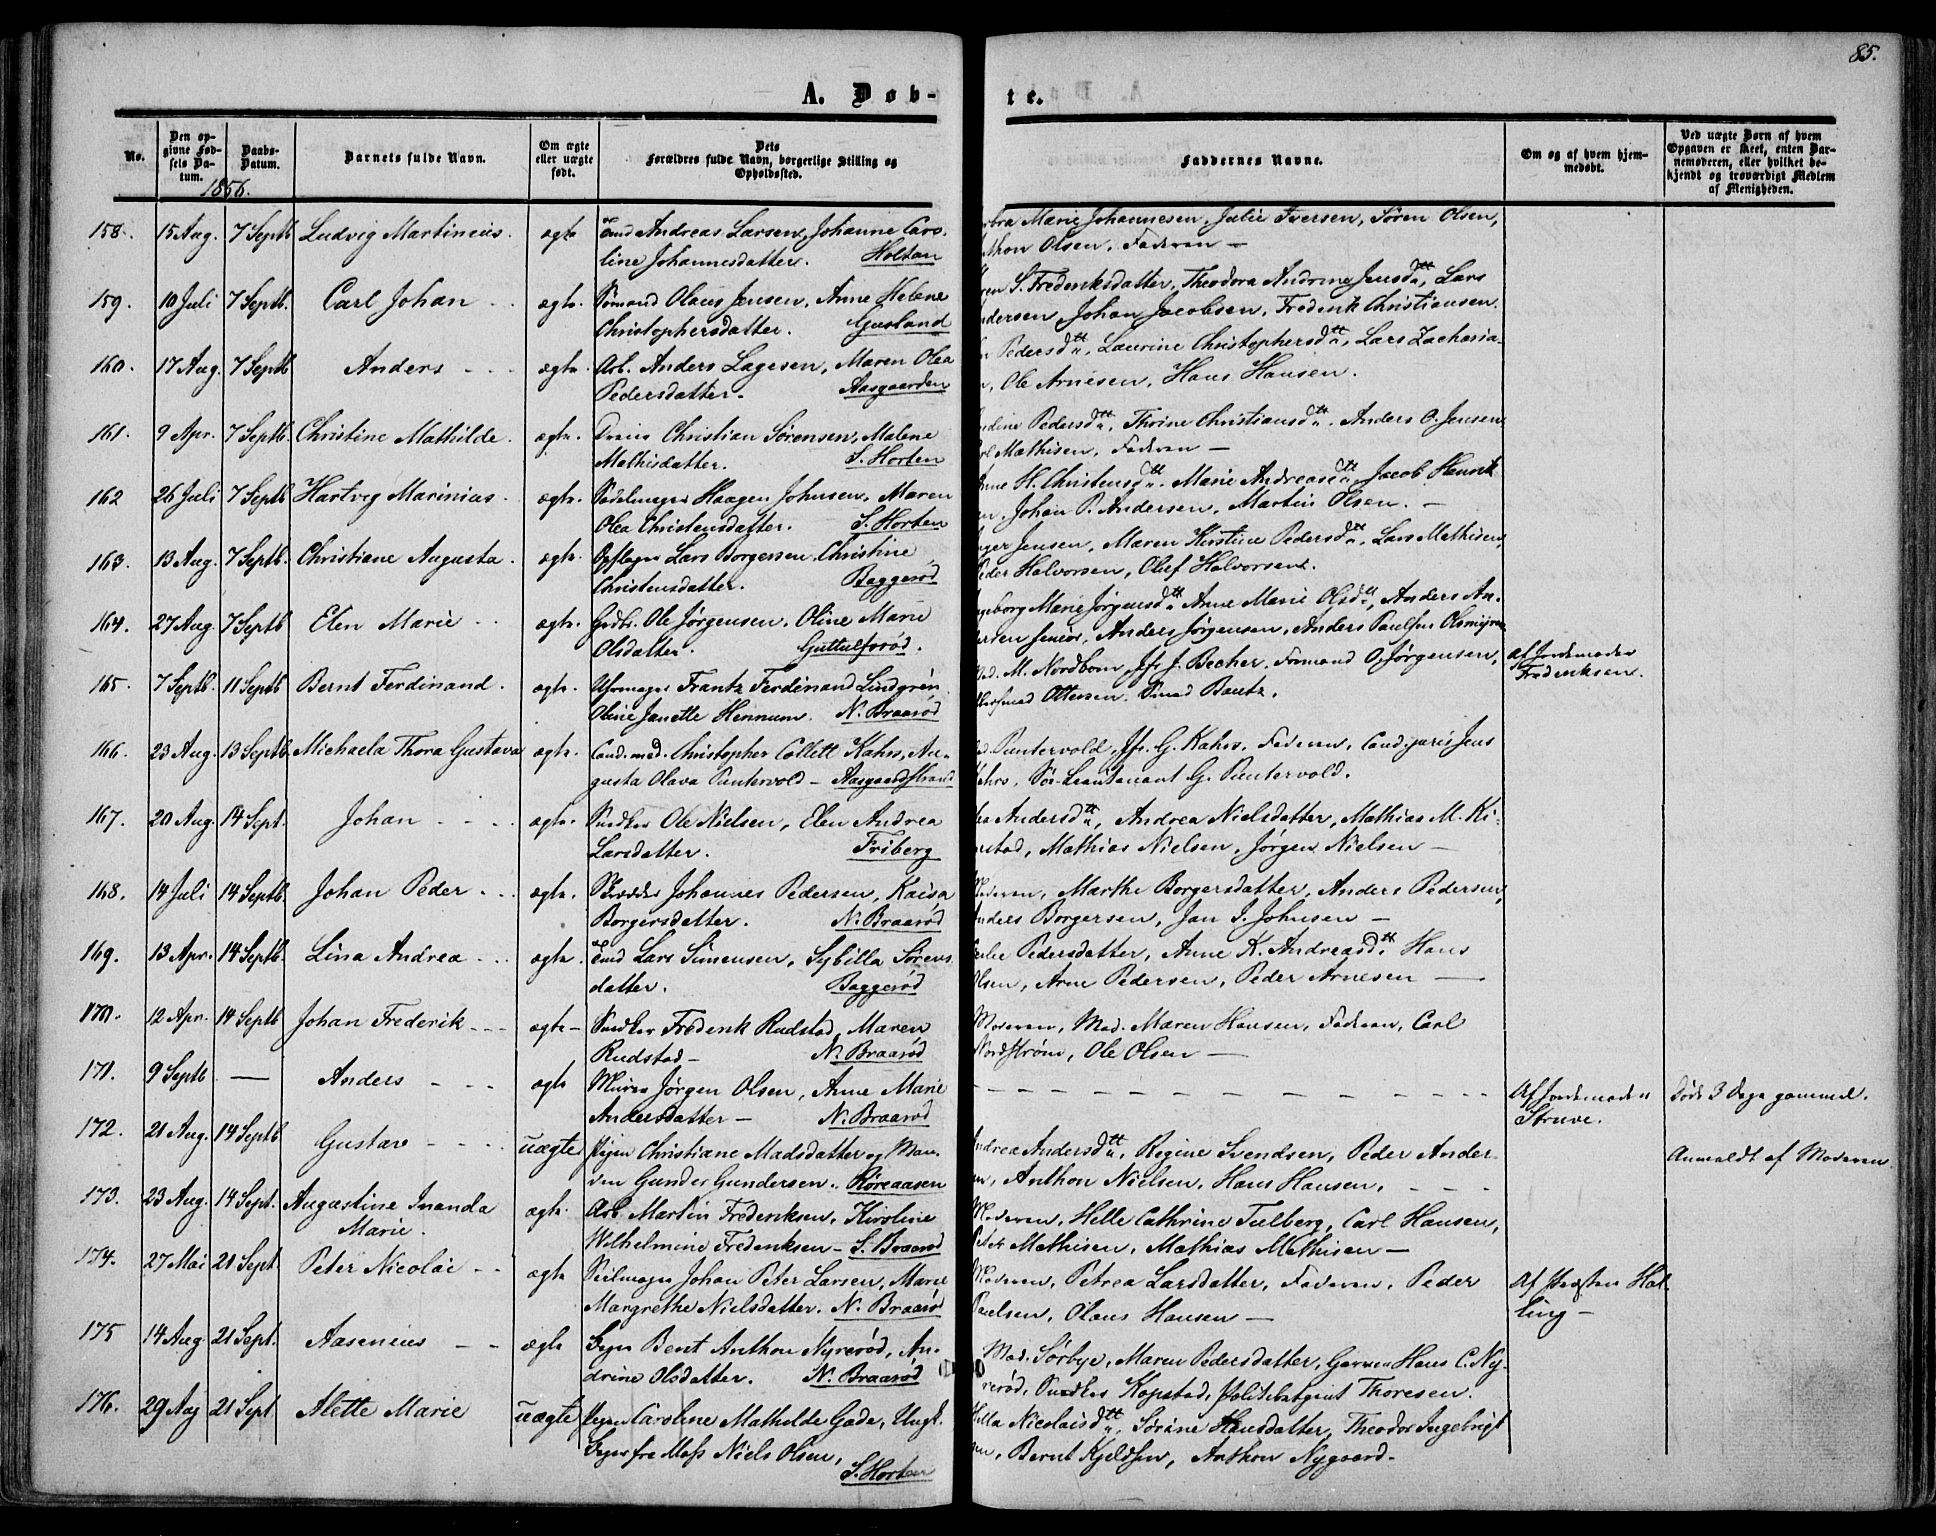 85.
A. Døb-
te.
No.
Den op-
givne Fød-
sels Da-
tum.
Daabs-
Datum.
Barnets fulde Navn.
Om ægte
eller uægte
født.
Dets
Forældres fulde Navn, borgerlige Stilling og
Opholdssted.
Faddernes Navne.
Om og af hvem hjem-
medøbt.
Ved uægte Børn af hvem
Opgaven er skeet, enten Bar-
nemoderen, eller hvilket be-
kjendt og troværdigt Medlem
af Menigheden.
1856.
158. 15 Aug. 7 Septb Ludvig Martinius. ægte Andreas Larsen, Johanne Caro-
line Johannesdatter. Holtan
Marie Johannesen, Julie Iversen, Søren Olsen,
Olsen, Faderen —
159. 10 Juli 7 Septb. Carl Johan ægte. Sømand Olaus Jensen, Anne Helene
Christophersdatter. Gusland
S. Frederiksdatter, Theodora Andrine Jensdtt, Lars
Johan Jacobsen, Frederik Christiansen.
160. 17 Aug. 7 Septb Anders ægte. Arb. Anders Lagesen, Maren Olea
Pedersdatter. Aasgaarden
Pedersdtt, Laurine Christophersdtt, Lars Zacharia-
Ole Arnesen, Hans Hansen.
161. 9 Apr. 7 Septb. Christine Mathilde. ægte. Christian Sørensen, Malene
Mathisdatter. S. Horten
Pedersdtt, Thorine Christiansdtt. Anders O. Jensen,
Mathisen, Faderen —
162 26 Juli 7 Septb Hartvig Marinius. ægte. Sadelmager Haagen Johnsen, Maren
Olea Christensdatter. S. Horten
H. Christensdtt. Marie Andreasdtt, Jacob Henrik-
Johan P. Andersen, Martin Olsen. —
163. 13 Aug. 7 Septb. Christiane Augusta. ægte. Opflager Lars Borgersen, Christine
Christensdatter. Baggerød
Jensen, Maren Kirstine Pedersdtt, Lars Mathisen,
Halvorsen, Oluf Halvorsen.
164. 27 Aug. 7 Septb Elen Marie ægte. Gdbr. Ole Jørgensen, Oline Marie
Olsdatter. Guttulfsrød.
Marie Jørgensdtt Anne Marie Olsdtt, Anders An-
Anders Jørgensen, Anders Paulsen
165. 7 Septb. 11 Septb Bernt Ferdinand. ægte. Uhrmager Frantz Ferdinand Lindgrén
Oline Janette Hennum. N. Braarød
M. Nordbom, Jfr. J. Becher, Formand O. Jørgensen,
Ottersen. Bautz.
af Jordemoder
Frederiksen.
166. 23 Aug. 13 Septb. Michaela Thora Gustava ægte. Cand. med. Christopher Collett Kahrs, Au-
gusta Olava Puntervold — Aasgaardstrand
Puntervold, Jfr. G. Kahrs, Faderen, Cand. juris Jens
Kahrs, Sø-Leutenant G. Puntervold.
167. 20 Aug. 14 Sept. Johan ægte. Snedker Ole Nielsen, Elen Andrea
Larsdatter. Friberg
Andersdtt, Andrea Nielsdatter, Mathias M. Ki-
Mathias Nielsen, Jørgen Nielsen —
168. 14 Juli 14 Septb. Johan Peder ægte. Skrædder Johannes Pedersen, Kaisa
Borgersdatter. N. Braarød
Moderen, Marthe Borgersdatter, Anders Pedersen,
Anders Borgersen, Jan J. Johnsen —
169. 13 Apr. 14 Septb. Lina Andrea ægte. Lars Simensen, Sybilla Sørens-
datter. Baggerød
Pedersdatter, Anne K. Andreasdtt. Hans
Olsen, Arne Pedersen, Peder Arnesen —
170. 12 Apr. 14 Septb Johan Frederik ægte Snedker Frederik Rudstad, Maren
Rudstad — N. Braarød
Moderen, Mad. Maren Hansen, Faderen, Carl
Nordstrøm, Ole Olsen —
171. 9 Septb — Anders ægte Murer Jørgen Olsen, Anne Marie
Andersdatter — N. Braarød
Af Jordemoder
Struve.
Døde 3 Dage gammel.
172. 21 Aug. 14 Septb Gustav uægte Pigen Christiane Madsdatter og Man-
den Gunder Gundersen. Røreaasen
Andrea Andersdtt, Regine Svendsen, Peder Ander-
Anthon Nielsen, Hans Hansen.
Anmeldt af Moderen.
173. 23 Aug. 14 Sept. Augustine Inanda
Marie. ægte. Arb. Martin Frederiksen, Kiroline
Wilhelmine Frederiksen — S. Braarød
Moderen, Helle Cathrine Tulberg, Carl Hansen,
Mathisen, Mathias Mathisen —
174. 27 Mai 21 Sept Peter Nicolai ægte Seilmager Johan Peter Larsen, Marie
Margrethe Nielsdatter. N. Braarød
Moderen, Petrea Larsdatter, Faderen, Peder
Paulsen, Olaus Hansen —
Af Præsten Hal-
ling —
175 14 Aug. 21 Sept. Aasenius ægte Bent Anthon Nyrerød, An-
drine Olsdatter. N. Braarød
Mad. Sørbye, Maren Pedersdatter, Garver Hans C. Ny-
rerød, Snedker Kopstad, Politibetjent Thoresen.
176. 29 Aug 21 Sept Alette Marie uægte Pigen Caroline Mathilde Gade, Ungk.
fra Moss Niels Olsen,
S. Horten
Nicolaisdtt, Sørine Hansdatter, Theodor Ingebrigt
Bernt Kjeldsen, Anthon Nygaard —